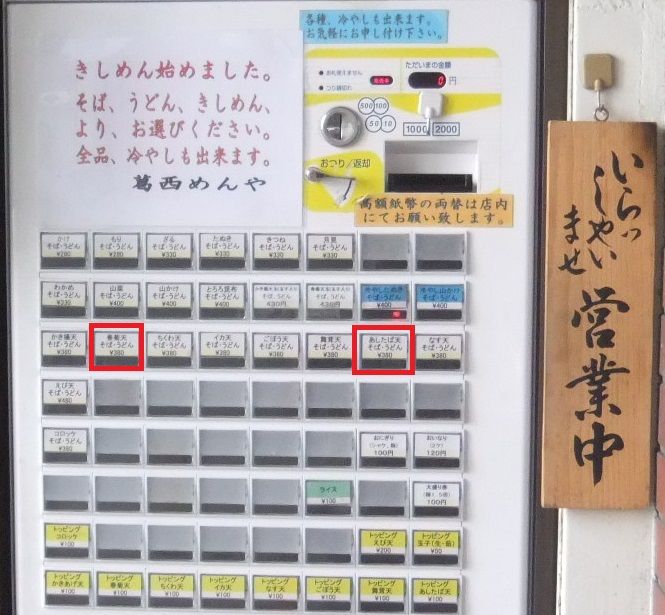 各種、冷やしも出来ます。
お気軽にお申し付け下さい。
きしめん始めました。
そば、うどん、きしめん、
より、お選びください。
全品、冷やしも出来ます。
葛西めんや
お札使えません
つり銭切れ
発売中
ただいまの金額
0 円
500 100
50 10
1000 2000
おつり/返却
高額紙幣の両替は店内
にてお願い致します。
いらっしゃいませ
営業中
かけ
そば・うどん
¥280
もり
そば・うどん
¥280
ざる
そば・うどん
¥330
たぬき
そば・うどん
¥330
きつね
そば・うどん
¥330
月見
そば・うどん
¥330
わかめ
そば・うどん
山菜
そば・うどん
¥400
山かけ
そば・うどん
¥400
とろろ昆布
そば・うどん
¥400
冷やしたぬき
そば・うどん
¥400
冷やし山かけ
そば・うどん
¥400
かき揚天
そば・うどん
¥380
春菊天
そば・うどん
¥380
ちくわ天
そば・うどん
¥380
イカ天
そば・うどん
¥380
ごぼう天
そば・うどん
¥380
舞茸天
そば・うどん
¥380
あしたば天
そば・うどん
¥380
なす天
そば・うどん
¥380
えび天
そば・うどん
¥480
コロッケ
そば・うどん
¥380
おにぎり
100円
おいなり
(2ケ)
120円
ライス
¥100
大盛り券
(麺1.5倍)
100円
トッピング
コロッケ
¥100
トッピング
えび天
¥200
トッピング
玉子(生・茹)
¥50
トッピング
かきあげ天
¥100
トッピング
春菊天
¥100
トッピング
ちくわ天
¥100
トッピング
イカ天
¥100
トッピング
なす天
¥100
トッピング
ごぼう天
¥100
トッピング
舞茸天
¥100
トッピング
あしたば天
¥100